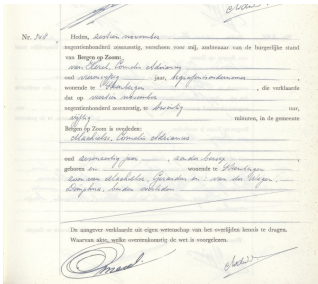 Nr. 348
Heden, zestien november
negentienhonderd zesenzestig, verscheen voor mij, ambtenaar van de burgerlijke stand
van Bergen op Zoom:
van Karel, Cornelis Adrianus
oud jaar, begrafenisondernemer
wonende te Steenbergen, die verklaarde
dat op november
negentienhonderd zesenzestig, te twintig uur,
vijftig minuten, in de gemeente
Bergen op Zoom is overleden:
Machielse, Cornelis Adrianus
oud jaar, zonder beroep
geboren en wonende te Steenbergen
zoon van Machielse, en van
Dimphna, beiden overleden
De aangever verklaarde uit eigen wetenschap van het overlijden kennis te dragen.
Waarvan akte, welke overeenkomstig de wet is voorgelezen.